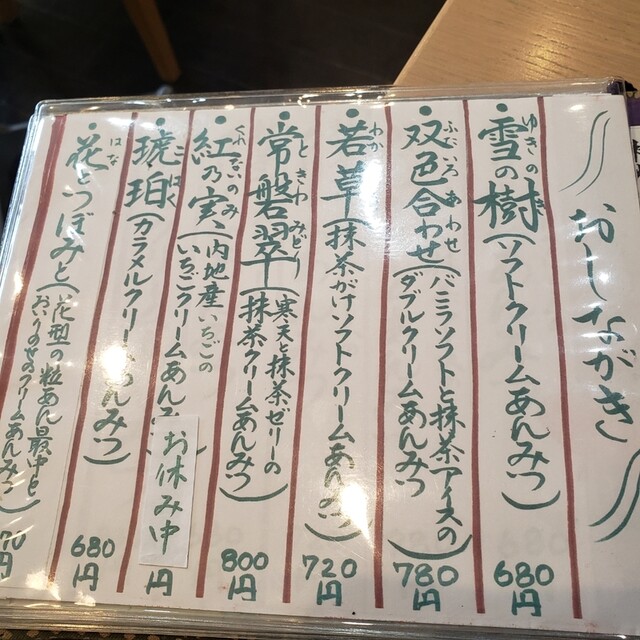 おしながき
・雪の樹(ソフトクリームあんみつ)
ゆきのき
680円
・双色合わせ(バニラソフトと抹茶アイスの
ダブルクリームあんみつ)
ふたいろあわせ
780円
・若草(抹茶がけソフトクリームあんみつ)
わかくさ
720円
・常磐翠(寒天と抹茶ゼリーの
抹茶クリームあんみつ)
ときわみどり
800円
・紅乃実(内地産いちごの
いちごクリームあんみ
くれないのみ
お休み中
円
・琥珀(カラメルクリームあんみつ)
こはく
680円
・花とつぼみと(花型の粒あん最中と
おいりのせのクリームあんみつ)
はな
70円